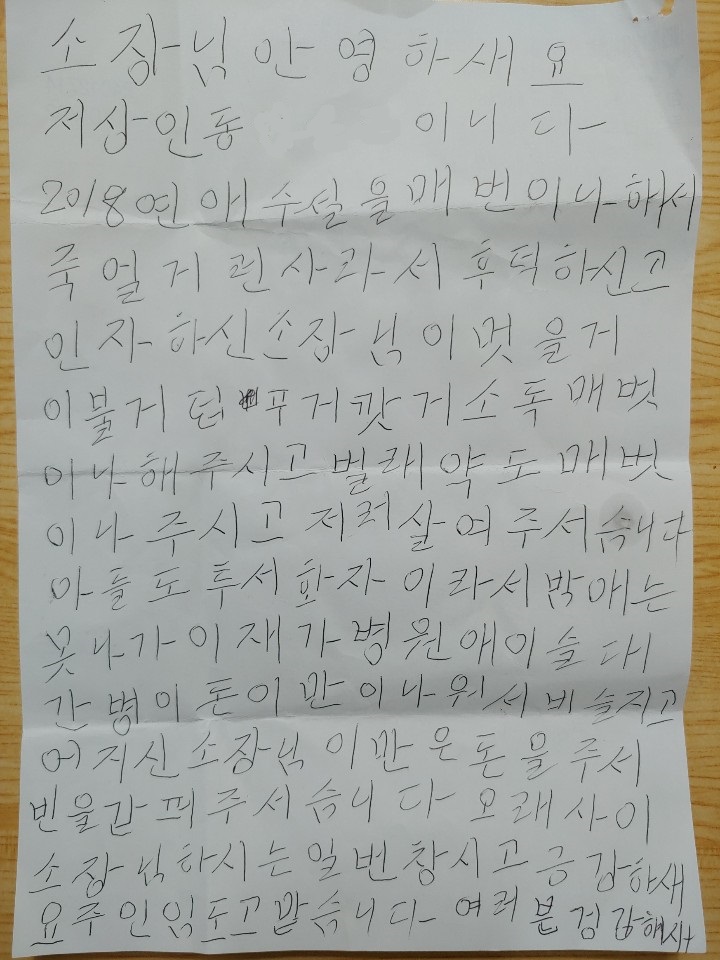 소장님안영하새요
저상인동 이니다
2018연애수설을매번이나해서
죽얼거린사라서후덕하신고
인자하신소장님이멋을거
이불거던푸거깟거소독매벗
이나해주시고벌래약도매벗
이나주시고저러살여주서습니다
아들도투서화자이라서밖애는
못나가이재가병원애이슬대
간병이돈이만이나워서비슬지고
어지신소장님이만은돈을주서
빈을간프주서습니다오래사이
소장님하시는일번창시고긍강하새
요주인임도고맙습니다여러분겅강해시